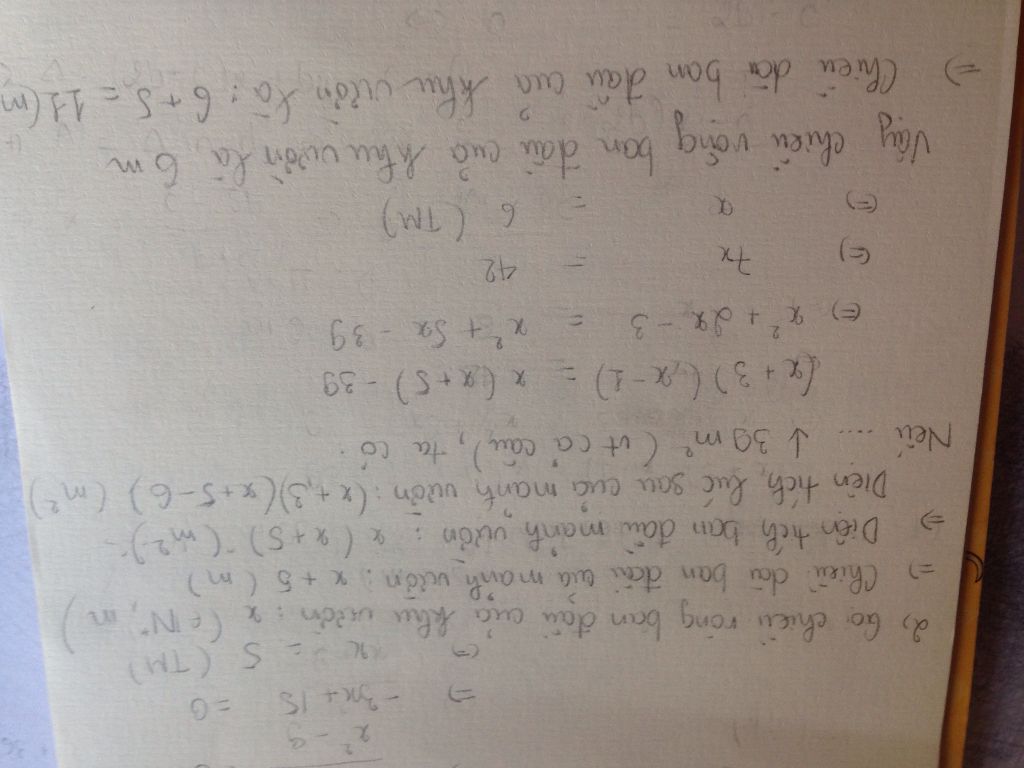 x² - 9
=> -3x + 15 = 0
<=> x = 5 (TM)
2) Gọi chiều rộng ban đầu của khu vườn : x (∈ N*, m)
=> Chiều dài ban đầu của mảnh vườn : x + 5 (m)
=> Diện tích ban đầu mảnh vườn : x (x+5) (m²)
Diện tích lúc sau của mảnh vườn : (x+3)(x+5-6) (m²)
Nếu .... ↓ 39 m² (vt cả câu), ta có :
(x+3)(x-1) = x(x+5) - 39
(=) x² + 2x - 3 = x² + 5x - 39
(=) 7x = 42
(=) x = 6 (TM)
Vậy chiều rộng ban đầu của khu vườn là 6 m
=> Chiều dài ban đầu của khu vườn là : 6 + 5 = 11 (m